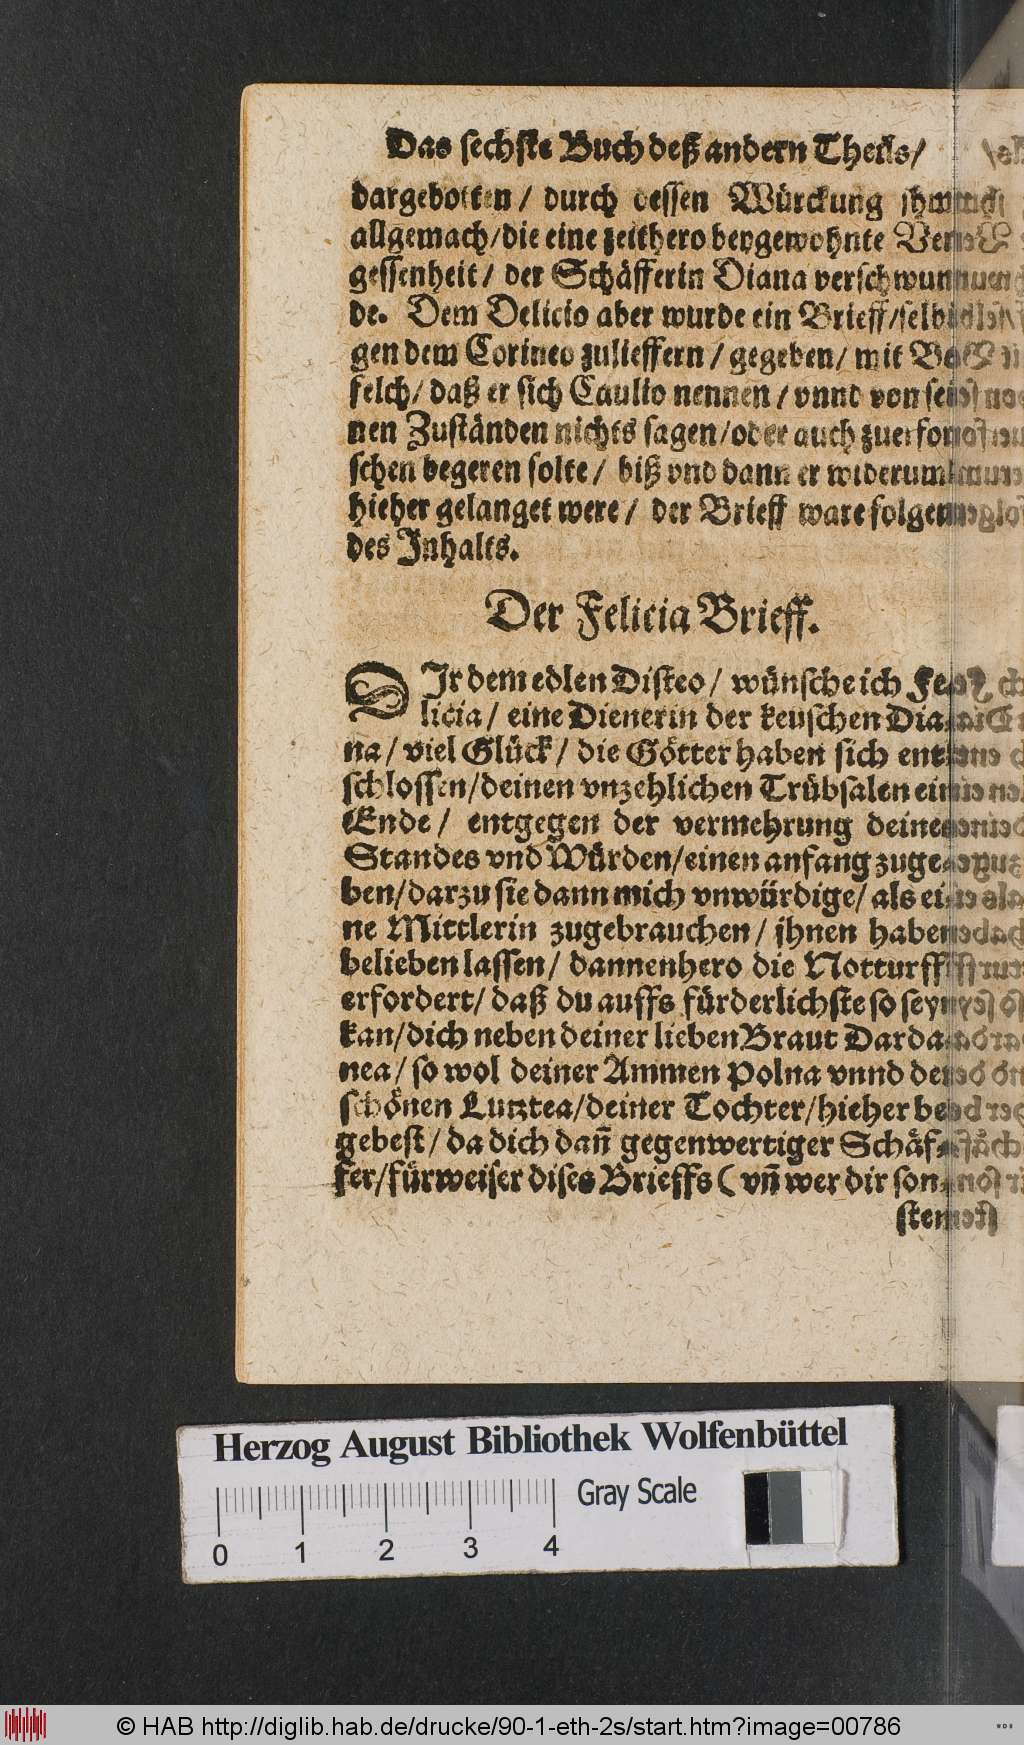 Das sechste Buch deß andern Theils/
dargebotten / durch dessen Würckung ihm
allgemach/die eine zeithero beygewohnte Ver-
gessenheit/ der Schäfferin Diana verschwun-
de. Dem Delicio aber wurde ein Brieff/selbi-
gen dem Corineo zulieffern / gegeben/ mit Be-
felch/ daß er sich Caulio nennen / vnnd von sei-
nen Zuständen nichts sagen/oder auch zuerfor-
schen begeren solte/ biß vnd dann er widerum
hieher gelanget were/ der Brieff ware folgen-
des Inhalts.
Der Felicia Brieff.
DIr dem edlen Disteo/ wünsche ich Fe-
licia/ eine Dienerin der keuschen Dia-
na/ viel Glück/ die Götter haben sich ent-
schlossen/deinen vnzehlichen Trübsalen ein
Ende/ entgegen der vermehrung deines
Standes vnd Würden/einen anfang zuge-
ben/darzu sie dann mich vnwürdige/ als ei-
ne Mittlerin zugebrauchen/ jhnen haben
belieben lassen/ dannenhero die Notturfft
erfordert/ daß du auffs fürderlichste so seyn
kan/dich neben deiner lieben Braut Darda-
nea/ so wol deiner Ammen Polna vnnd der
schönen Luztea/deiner Tochter/hieher be-
gebest/ da dich dañ gegenwertiger Schäf-
fer/fürweiser dises Brieffs (vñ wer dir son-
sten
Herzog August Bibliothek Wolfenbüttel
Gray Scale
0 1 2 3 4
© HAB http://diglib.hab.de/drucke/90-1-eth-2s/start.htm?image=00786